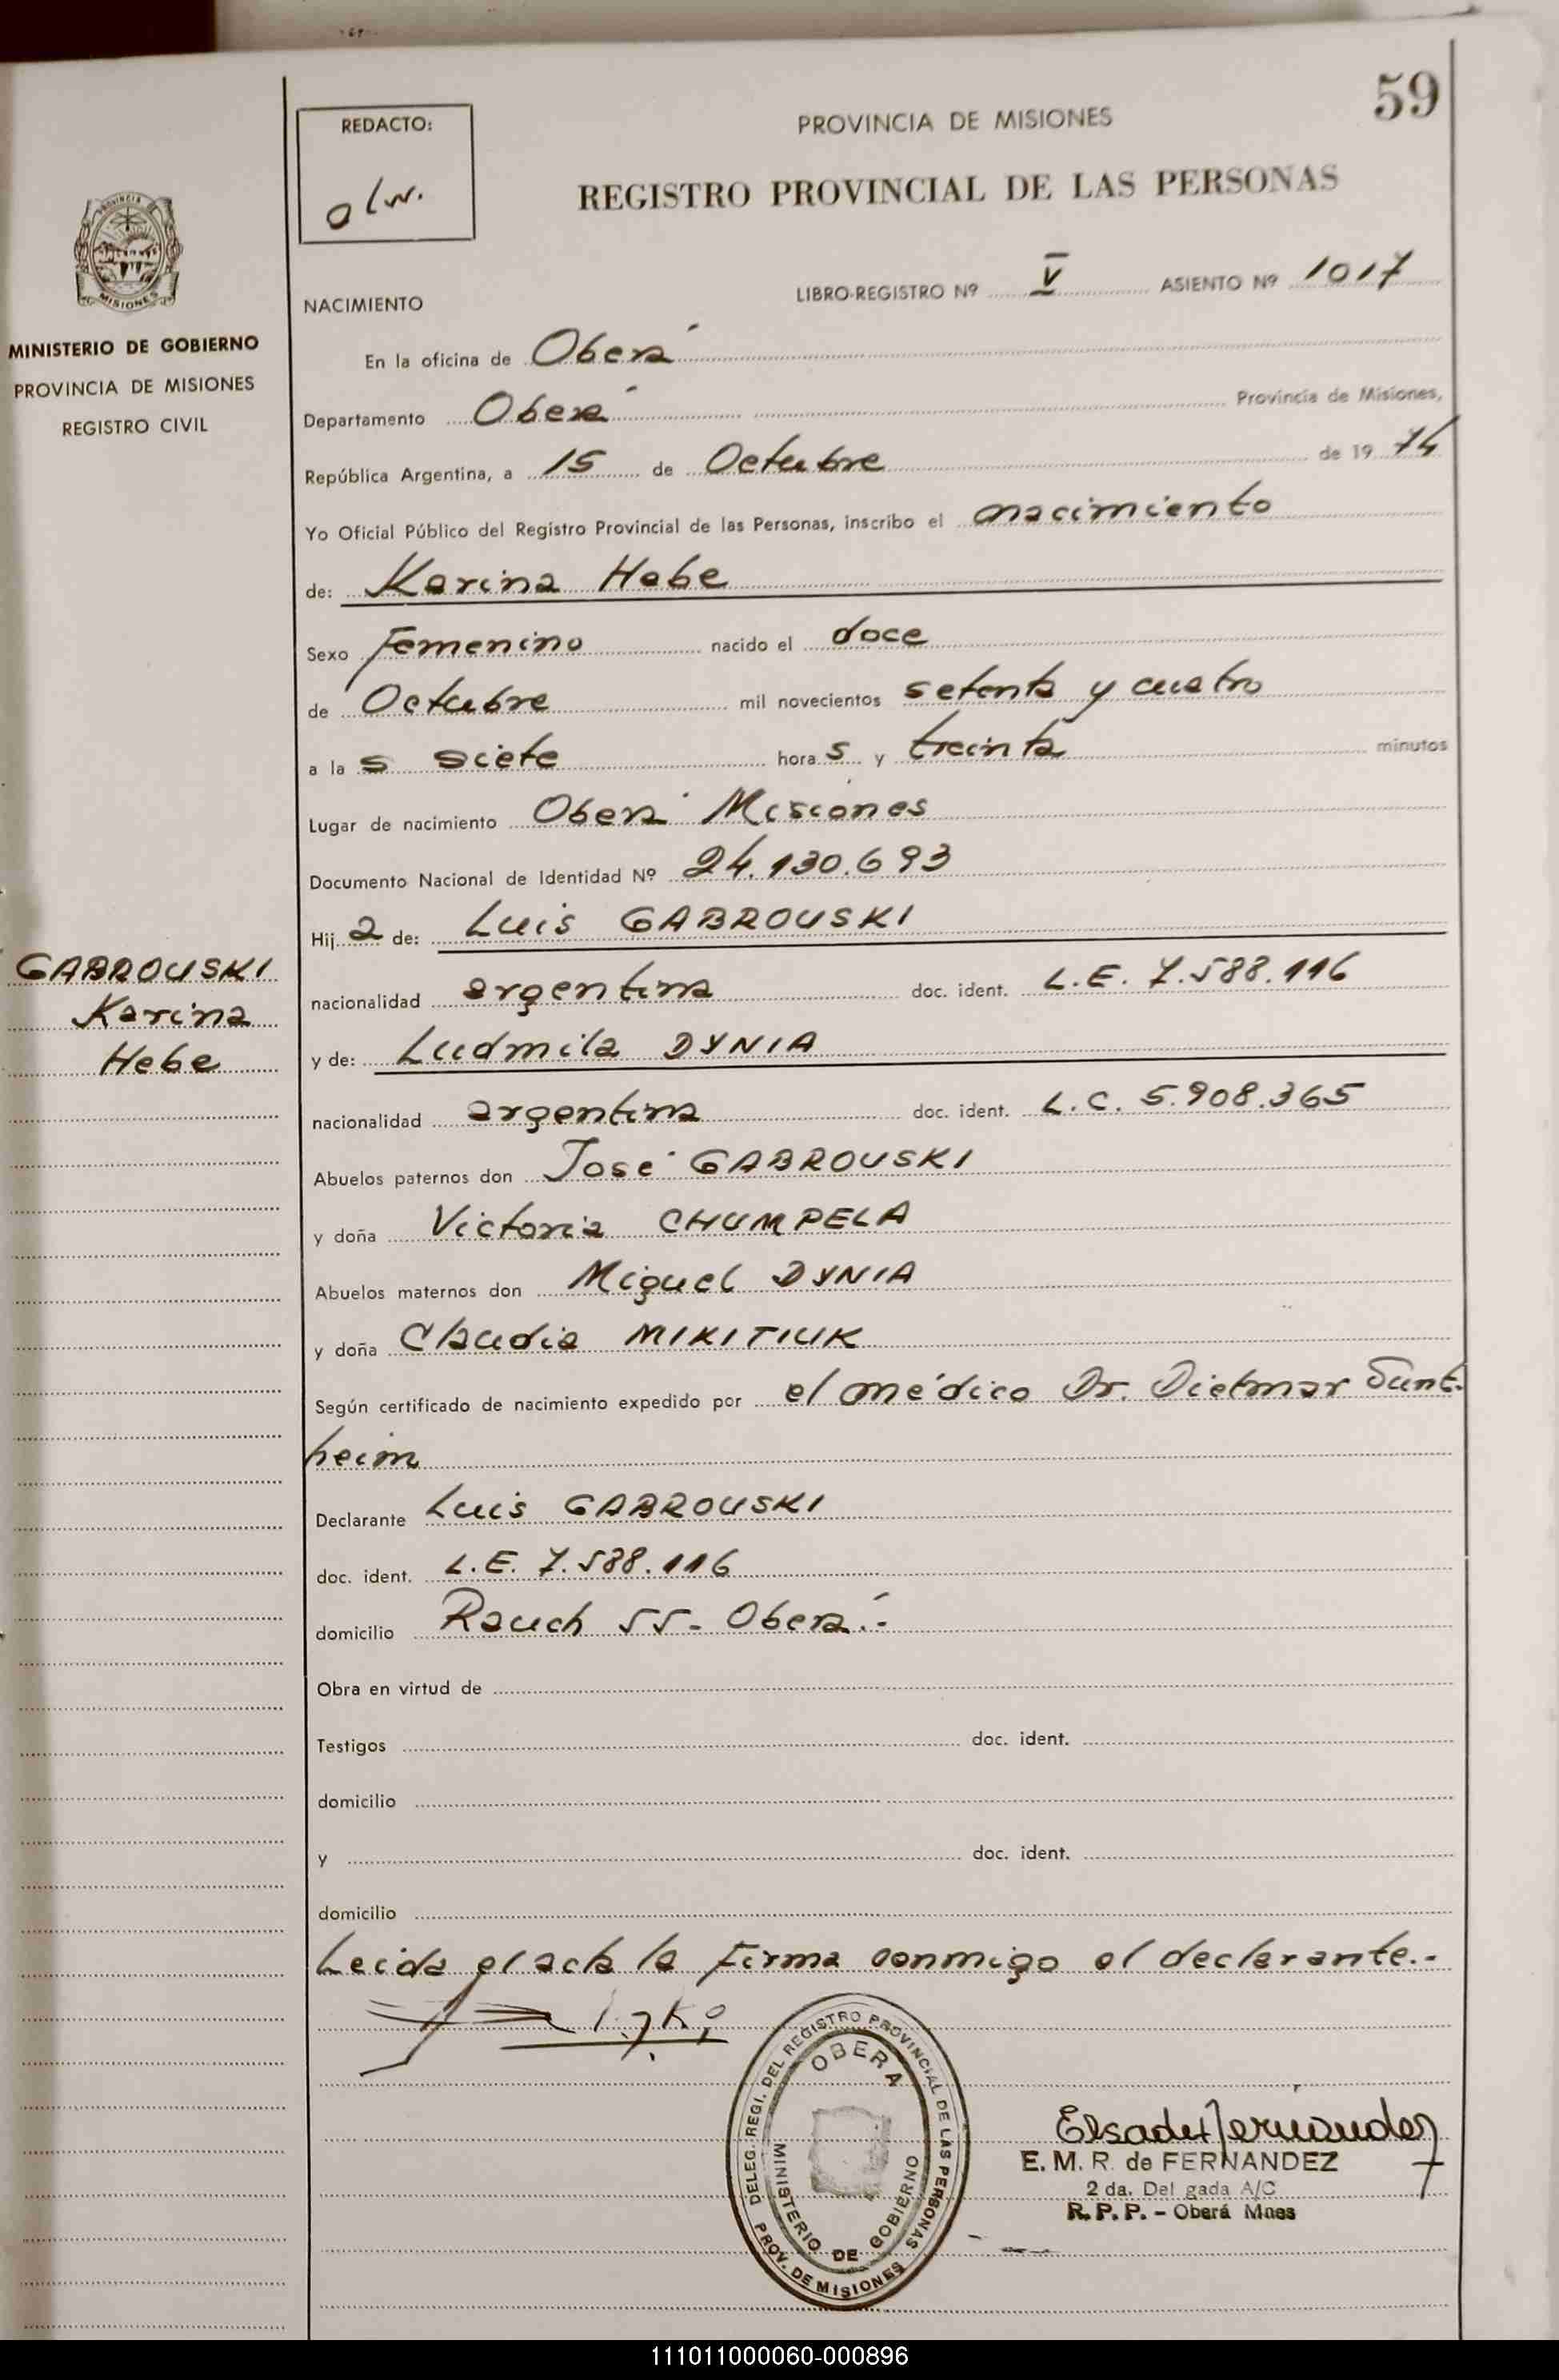 59
REDACTO:
olw.
PROVINCIA DE MISIONES
REGISTRO PROVINCIAL DE LAS PERSONAS
PROVINCIA DE
MISIONES
MINISTERIO DE GOBIERNO
PROVINCIA DE MISIONES
REGISTRO CIVIL
NACIMIENTO
LIBRO-REGISTRO Nº V ASIENTO Nº 1017
En la oficina de Oberá
Departamento Oberá Provincia de Misiones,
República Argentina, a 15 de Octubre de 19 74
Yo Oficial Público del Registro Provincial de las Personas, inscribo el nacimiento
de: Karina Hebe
Sexo Femenino nacido el doce
de Octubre mil novecientos setenta y cuatro
a la s siete hora s y treinta minutos
Lugar de nacimiento Oberá Misiones
Documento Nacional de Identidad Nº 24.130.693
Hij a de: Luis GABROUSKI
GABROUSKI
Karina
Hebe
nacionalidad argentina doc. ident. L.E. 7.588.116
y de: Ludmila DYNIA
nacionalidad argentina doc. ident. L.C. 5.908.365
Abuelos paternos don José GABROUSKI
y doña Victoria CHUMPELA
Abuelos maternos don Miguel DYNIA
y doña Claudia MIKITIUK
Según certificado de nacimiento expedido por el médico Dr. Dietmar Sunt-
heim
Declarante Luis GABROUSKI
doc. ident. L.E. 7.588.116
domicilio Rauch 55- Oberá.-
Obra en virtud de
Testigos doc. ident.
domicilio
y doc. ident.
domicilio
Leida el acta la firma conmigo el declarante.-
DELEG. REGI. DEL REGISTRO PROVINCIAL DE LAS PERSONAS
PROV. DE MISIONES
OBERA
MINISTERIO DE GOBIERNO
E. M. R. de FERNANDEZ
2 da. Del gada A/C
R. P. P. - Oberá Mnes
111011000060-000896